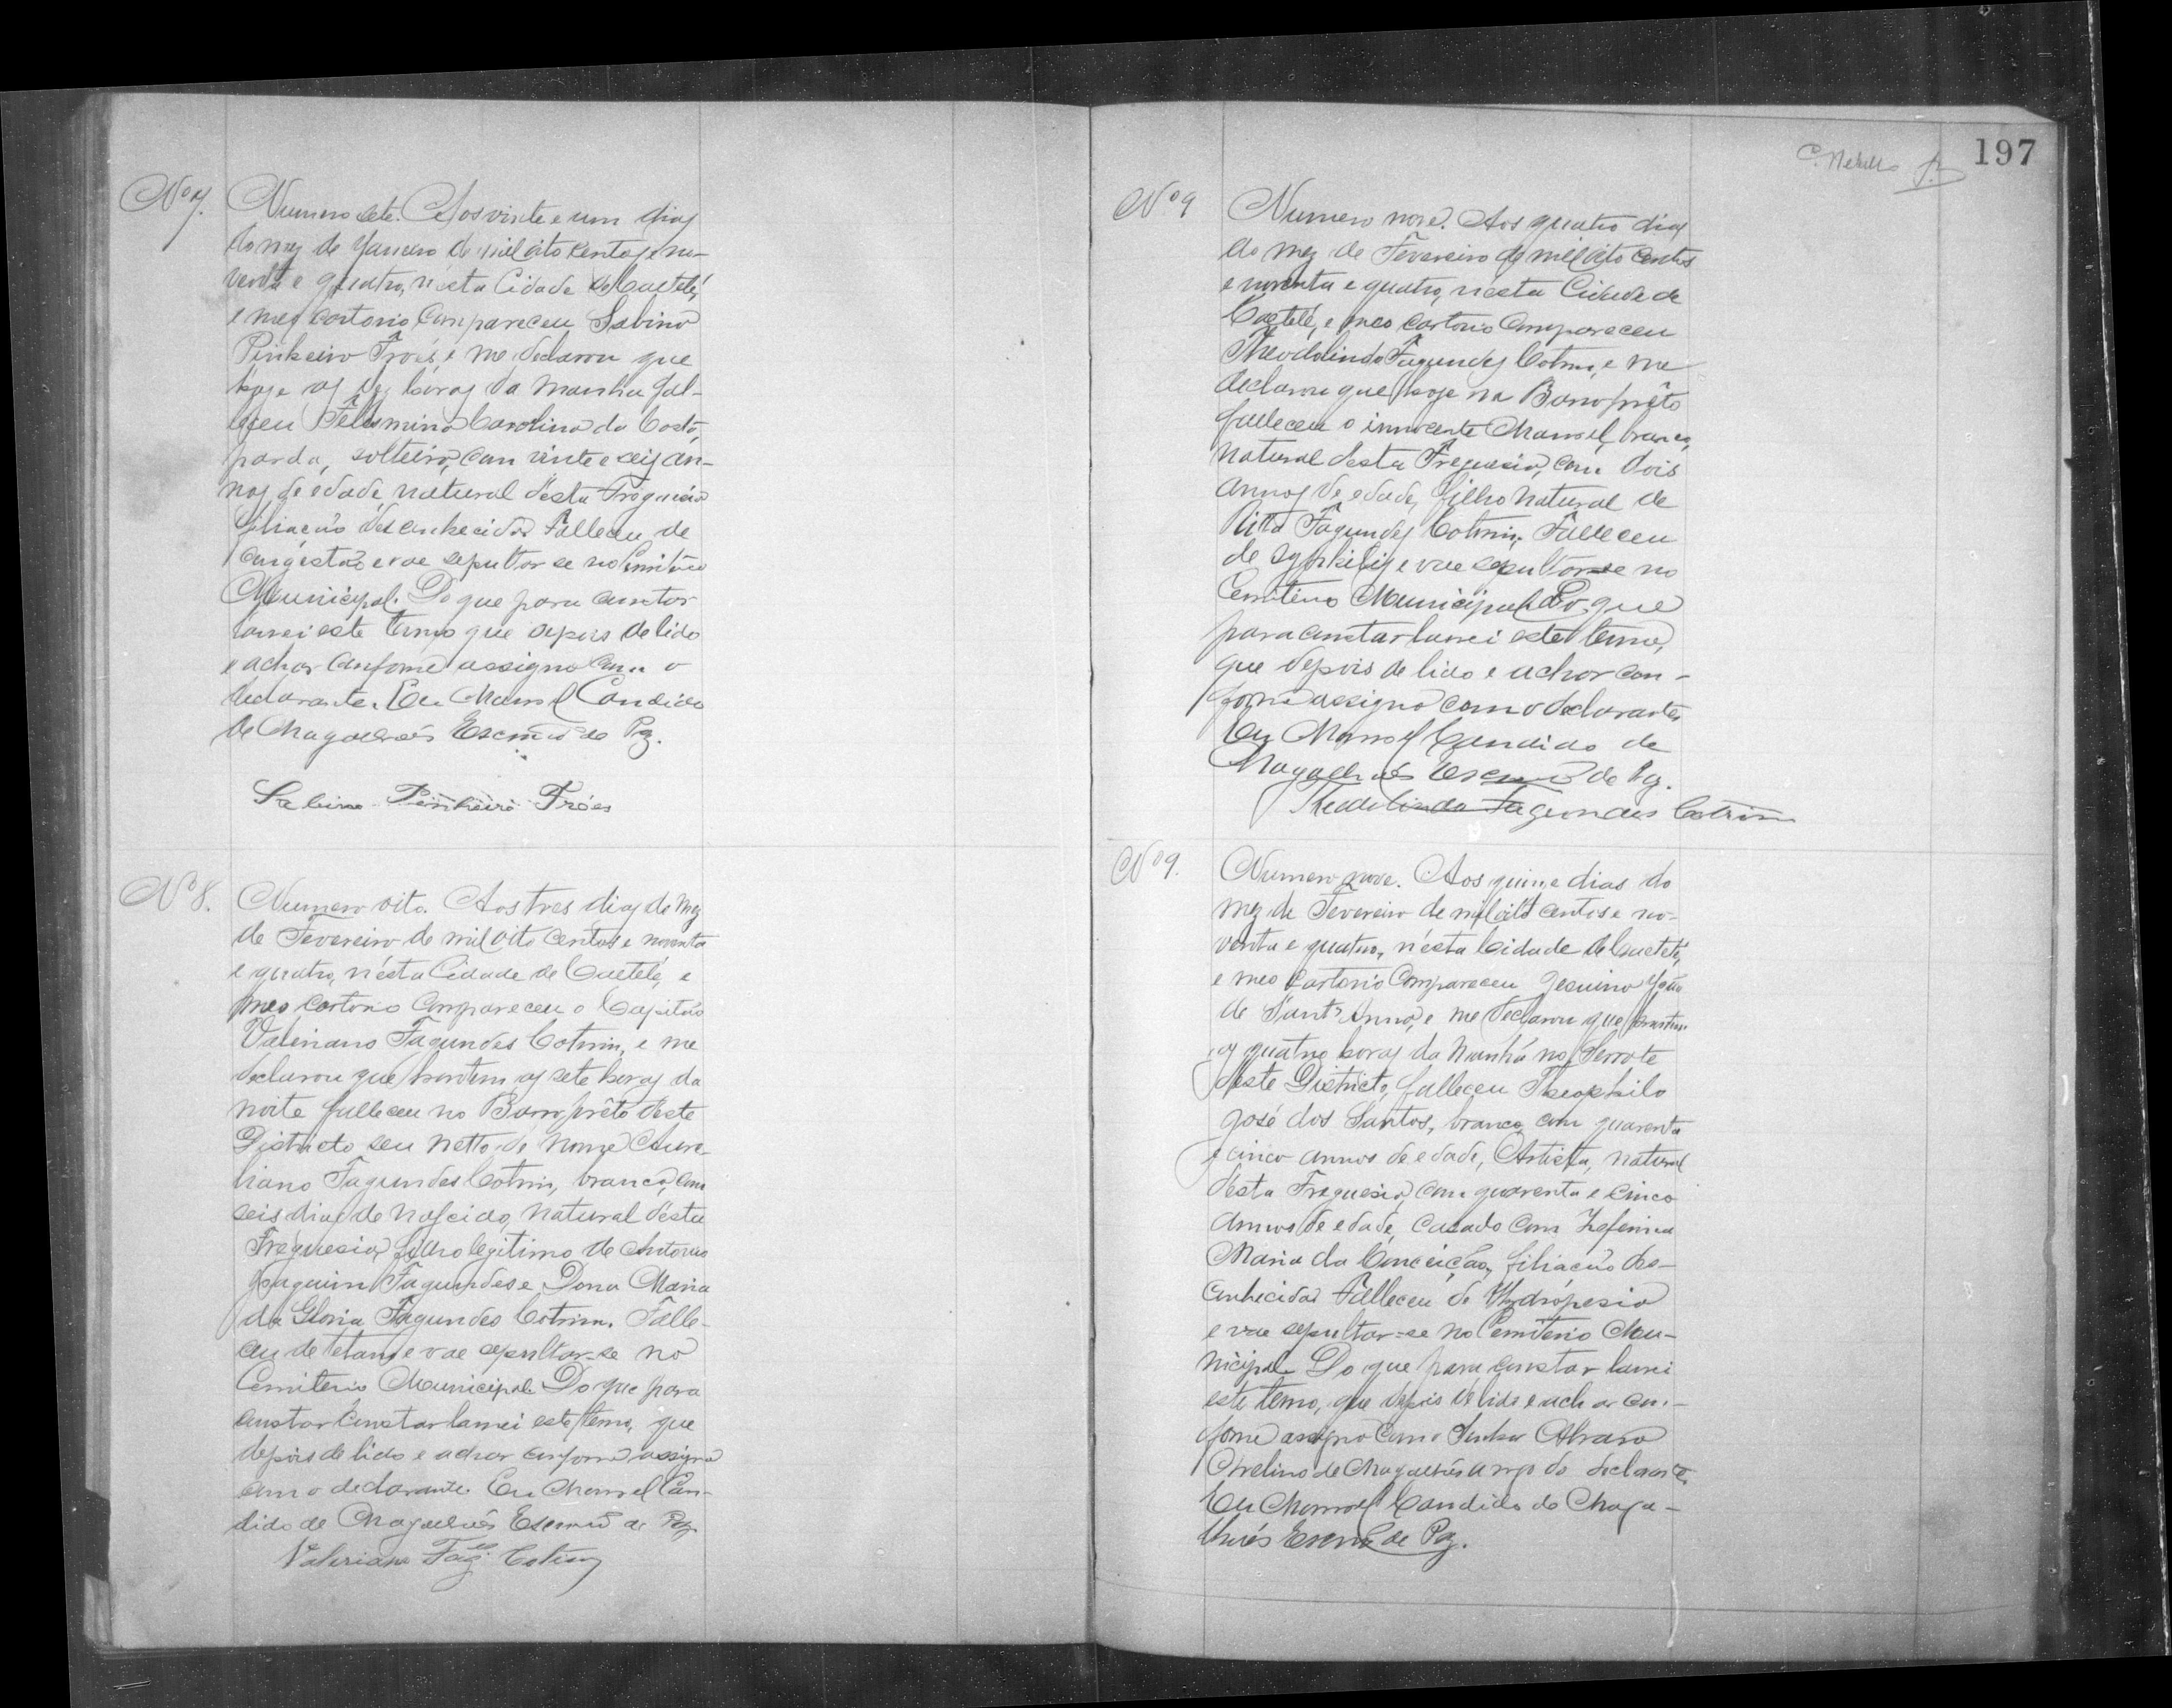 Nº 7.
Numero sete. Aos vinte e um dias
do mez de Janeiro de mil oito centos e no-
venta e quatro, n'esta Cidade de Caeteté,
e meo cartorio compareceu Sabino
Pinheiro Fróes, e me declarou que
hoje as dez horas da manha fal-
leceu Felismina Carolina da Costa,
parda, solteira, com vinte e seis an-
nos de edade, natural d'esta Freguesia
filiação desconhecida. Falleceu de
congestão e vae sepultar se no Cemiterio
Municipal. Do que para constar
lavrei este termo que depois de lido
e achar conforme assigno com o
declarante. Eu Manoel Candido
de Magalhães Escrivão de Paz.
Sabino Pinheiro Fróes
Nº 8.
Numero oito. Aos tres dias do mez
de Fevereiro de mil oito centos e noventa
e quatro, n'esta Cidade de Caeteté, e
meo cartorio compareceu o Capitão
Valeriano Fagundes Cotrim, e me
declarou que hontem as sete horas da
noite falleceu no Barro prêto d'este
Districto seu netto de nome Aure-
liano Fagundes Cotrim, branco, com
seis dias de nascido, natural d'esta
Freguesia, filho legitimo de Antonio
Joaquim Fagundes e Dona Maria
da Gloria Fagundes Cotrim. Falle-
ceu de tetano e vae sepultar-se no
Cemiterio Municipal. Do que para
constar constar lavrei este termo, que
depois de lido e achar conforme assigno
com o declarante. Eu Manoel Can-
dido de Magalhães Escrivão de Paz
Valeriano Fag.des Cotrim
197
Nº 9
Numero nove. Aos quatro dias
do mez de Fevereiro de mil oito centos
e noventa e quatro, n'esta Cidade de
Caeteté, e meo cartorio compareceu
Theodolindo Fagundes Cotrim, e me
declarou que hoje na Barro prêto
falleceu o innocente Manoel, branco,
natural desta Freguesia, com dois
annos de edade, filho natural de
Rita Fagundes Cotrim. Falleceu
de syphilis e vae sepultar-se no
Cemiterio Municipal. Do que
para constar lavrei este termo,
que depois de lido e achar con-
forme assigno com o declarante.
Eu Manoel Candido de
Magalhães Escrivão de Paz.
Theodolindo Fagundes Cotrim
Nº 9.
Numero nove. Aos quinze dias do
mez de Fevereiro de mil oito centos e no-
venta e quatro, n'esta Cidade de Caeteté,
e meo cartorio compareceu Jesuino
de Sant'Anna, e me declarou que
as quatro horas da manhã no Serrote
d'este Districto, falleceu Theophilo
José dos Santos, branco, com quarenta
e cinco annos de edade, Artista, natural
d'esta Freguesia, com quarenta e cinco
annos de edade, casado com Zeferina
Maria da Conceição, filiação des-
conhecida. Falleceu de Hydropesia
e vae sepultar-se no Cemiterio Mu-
nicipal. Do que para constar lavrei
este termo, que depois de lido e achar con-
forme assigno com o Senhor Alvaro
Avelino de Magalhães a rogo do declarante.
Eu Manoel Candido de Maga-
lhães Escrivão de Paz.